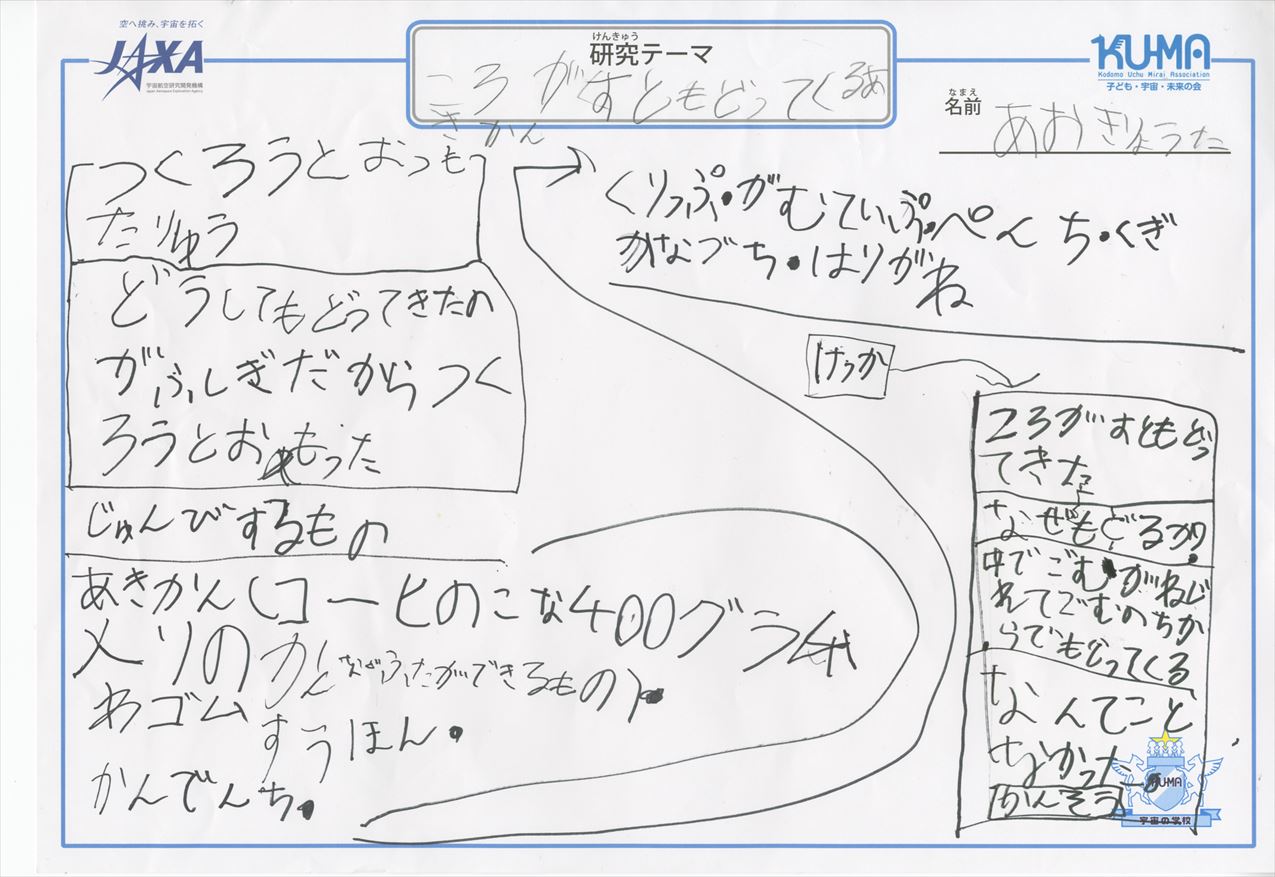 空へ挑み、宇宙を拓く
JAXA
宇宙航空研究開発機構
Japan Aerospace Exploration Agency
けんきゅう
研究テーマ
ころがすともどってくるあ
きかん
KU-MA
Kodomo Uchu Mirai Association
子ども・宇宙・未来の会
なまえ
名前
あおきりょうた
つくろうとおっも
たりゅう
どうしてもどってきたの
がふしぎだからつく
ろうとおもった
じゅんびするもの
あきかん(コーヒのこな400グラム
入りのかんながふたができるもの)・
わゴムすうほん・
かんでんち・
くりっぷ・がむていぷ・ぺんち・くぎ
かなづち・はりがね
けっか
ころがすともどっ
てきた
なぜもどるか
中でごむがねじ
れてごむのちか
らでもどってくる
なんてこと
なかった
かんそう
KUMA
宇宙の学校